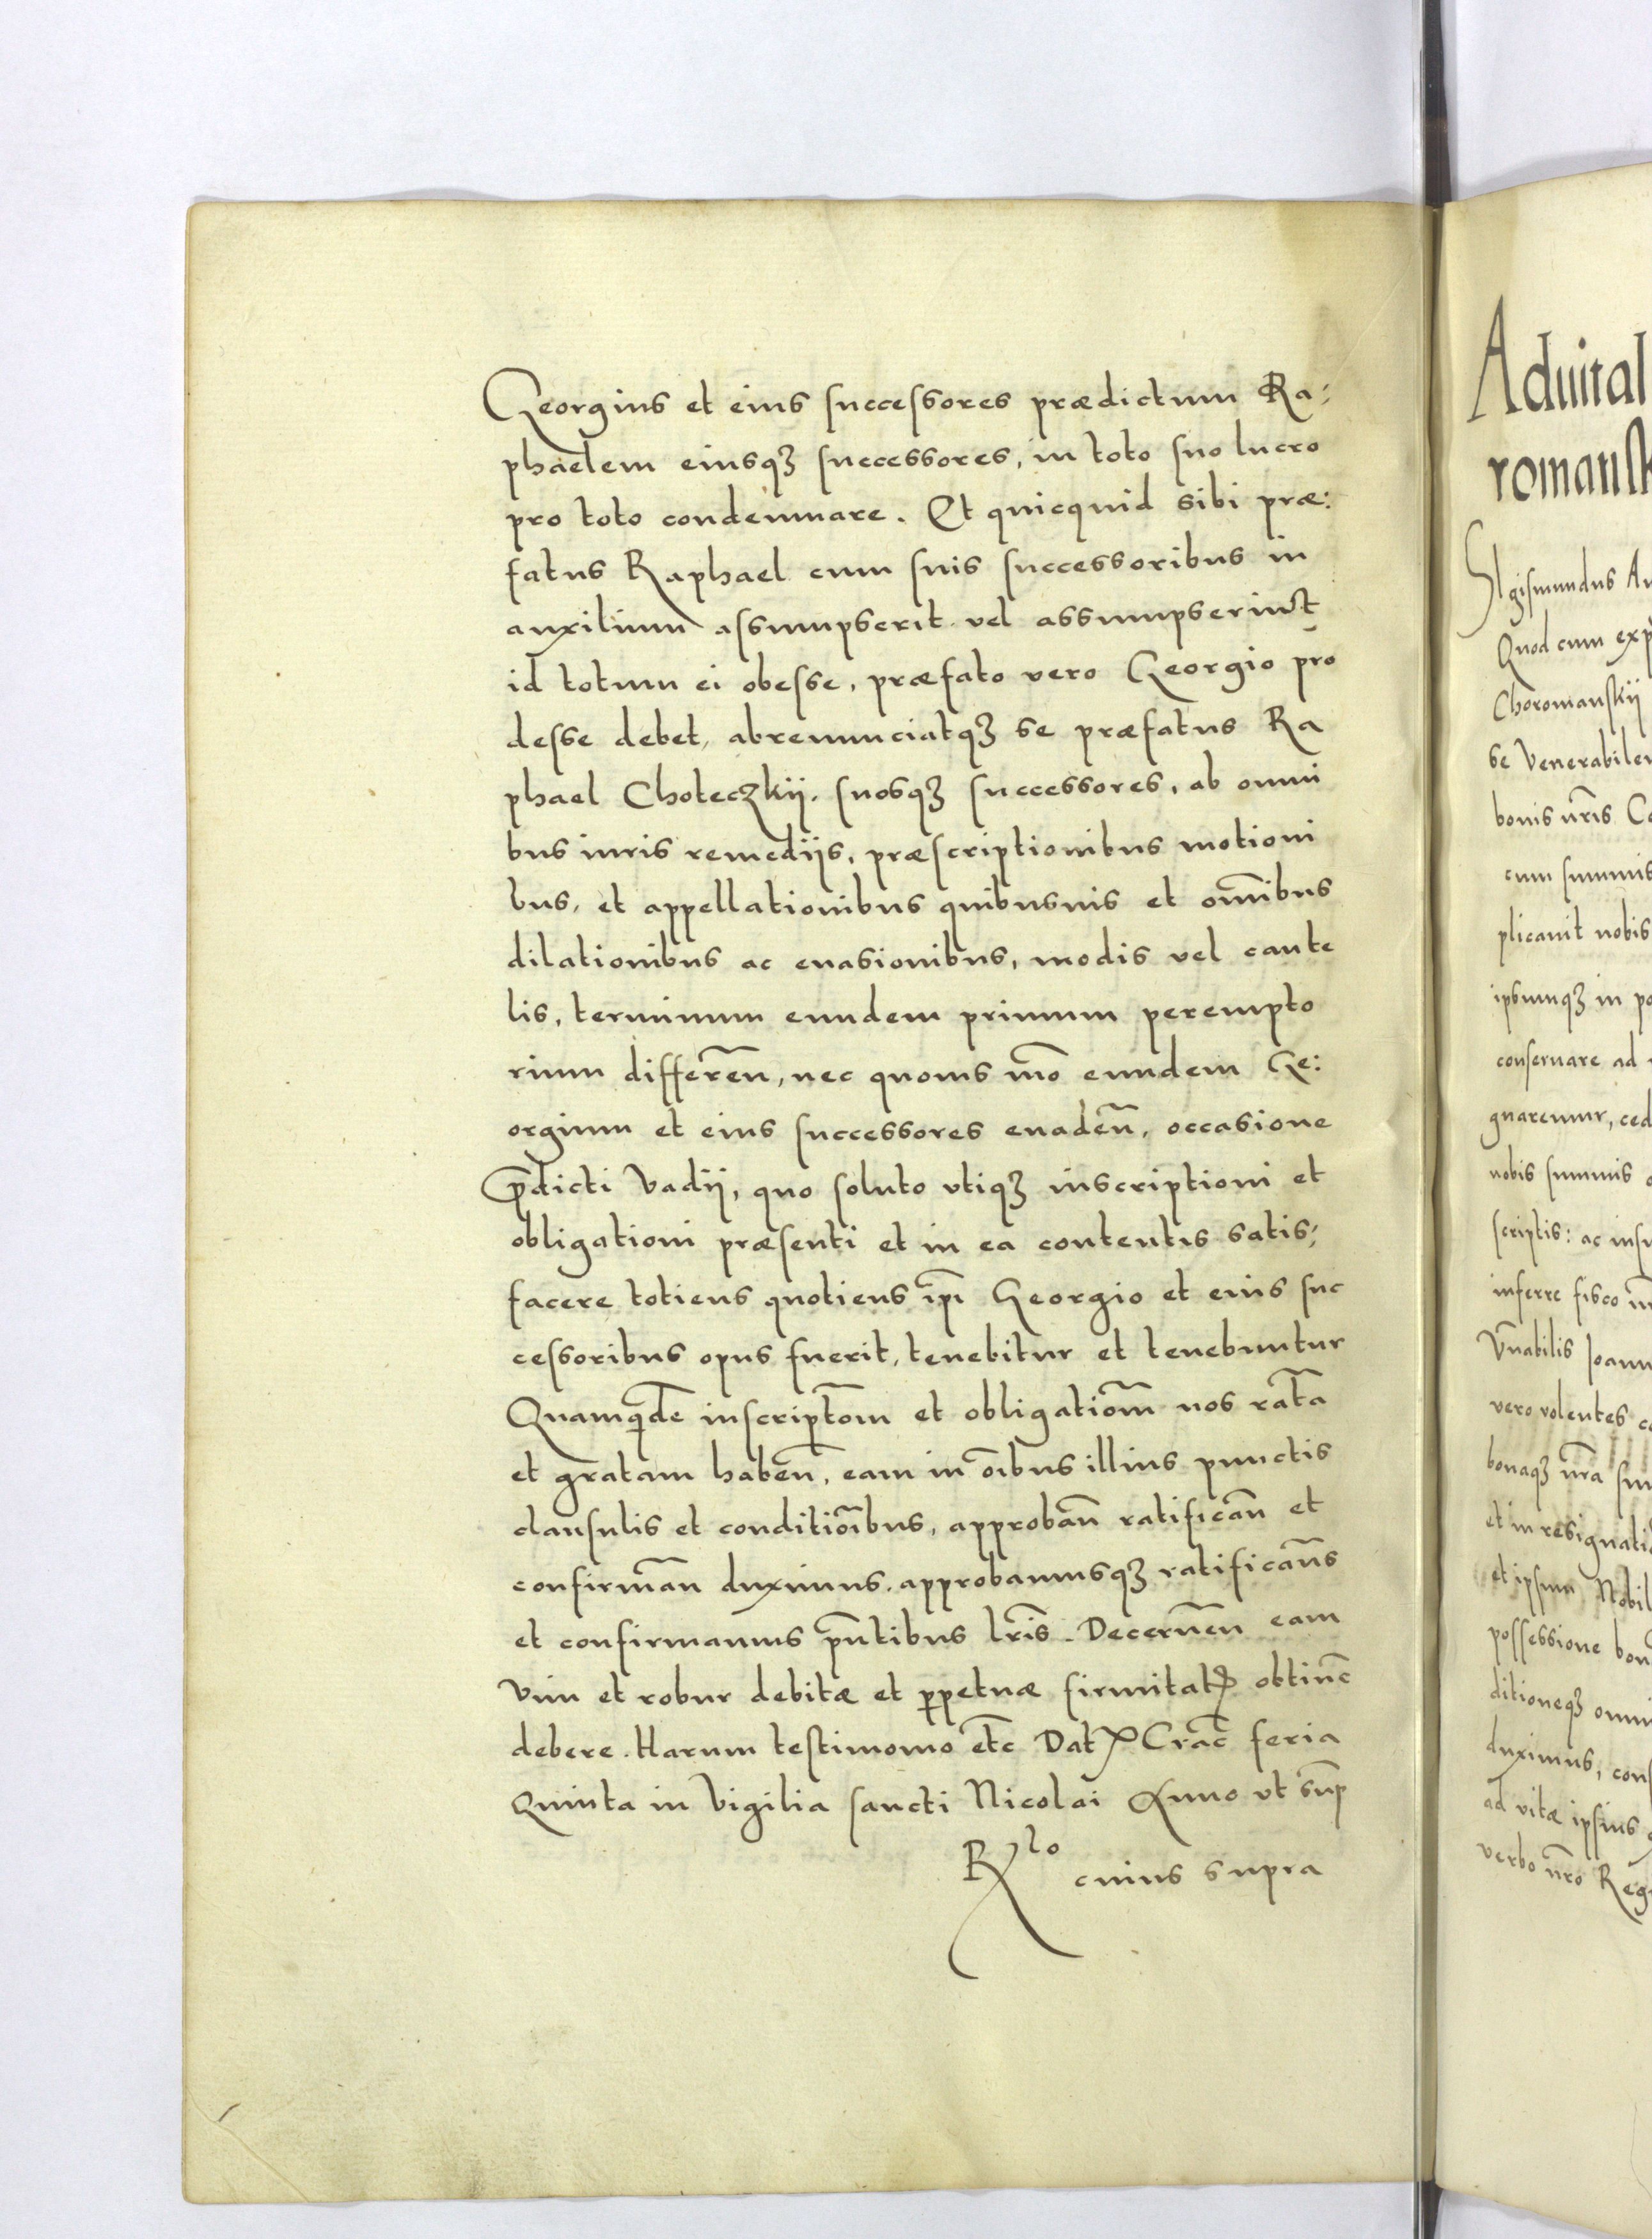 Georgius et eius successores prædictum Ra:
phaelem eiusqz successores, in toto suo lucro
pro toto condemnare. Et quicquid sibi præ:
fatus Raphael cum suis successoribus in
auxilium assumpserit vel assumpserint
id totum ei obesse, præfato vero Georgio pro
desse debet, abrenunciatqz se præfatus Ra
phael Choteczkij. suosqz successores, ab omni
bus iuris remedijs, præscriptionibus motioni
bus, et appellationibus quibusuis et om̄ibus
dilationibus ac euasionibus, modis vel caute
lis, terminum eundem primum perempto
rium differen̄, nec quouis mō eundem Ge:
orgium et eius successores euaden̄, occasione
p̄dicti vadij, quo soluto vtiqz inscriptioni et
obligationi præsenti et in ea contentis satis:
facere totiens quotiens ip̄i Georgio et eius suc
cessoribus opus fuerit, tenebitur et tenebuntur
Quamquidē inscriptōm et obligatiōm nos rat̄a
et gratam haben̄, eam in oībus illius punctis
clausulis et conditiōibus, approban̄ ratifican̄ et
confirman̄ duximus. approbamusqz ratificam̄s
et confirmamus pn̄tibus lr̄is. Decernen̄ eam
vim et robur debitæ et perpetuæ firmitatis obtinē
debere. Harum testimonio etc̄ Dat Crac̄ feria
Quinta in vigilia sancti Nicolai Anno vt sup̄
Rlo cuius supra
Aduital
romansk
SIgismundus Au
Quod cum exp
Choromanskij
se Venerabilem
bonis nr̄is Ca
cum summis
plicauit nobis
ipsumqz in po
conseruare ad
gnaremur, ced
nobis summis
scriptis: ac insu
inferre fisco
Vn̄abilis Joann
vero volentes co
bonaqz nr̄a sum
et in resignati
et ipsum Nobil
possessione bon
ditioneqz omni
duximus, cons
ad vitæ ipsius
verbo nr̄o Reg